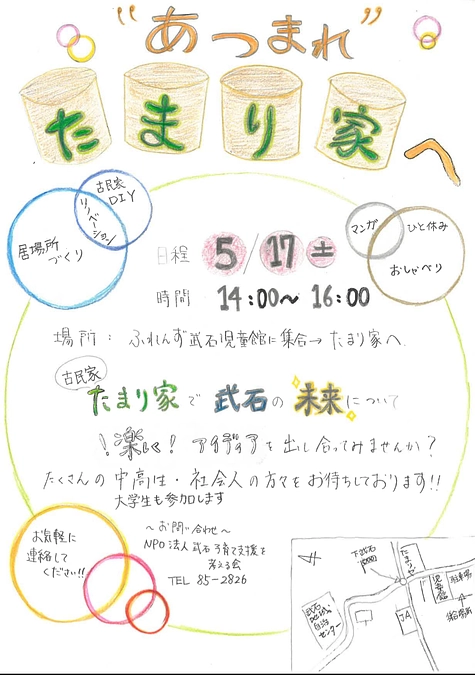 “あつまれ”
たまり家へ
古民家
DIY
リノベーション
居場所
づくり
マンガ
ひと休み
おしゃべり
日程 5/17 土
時間 14:00〜16:00
場所: ふれんず武石児童館に集合→たまり家へ
古民家
たまり家で武石の未来について
!楽しく! アイディアを出し合ってみませんか?
たくさんの中高生・社会人の方々をお待ちしております!!
大学生も参加します
お気軽に
連絡して
ください!!
〜お問い合わせ〜
NPO法人 武石子育て支援を
考える会
TEL 85-2826
下武石
たまりや
児童館
駐車場
集合場所
JA
武石
地域
自治
センター